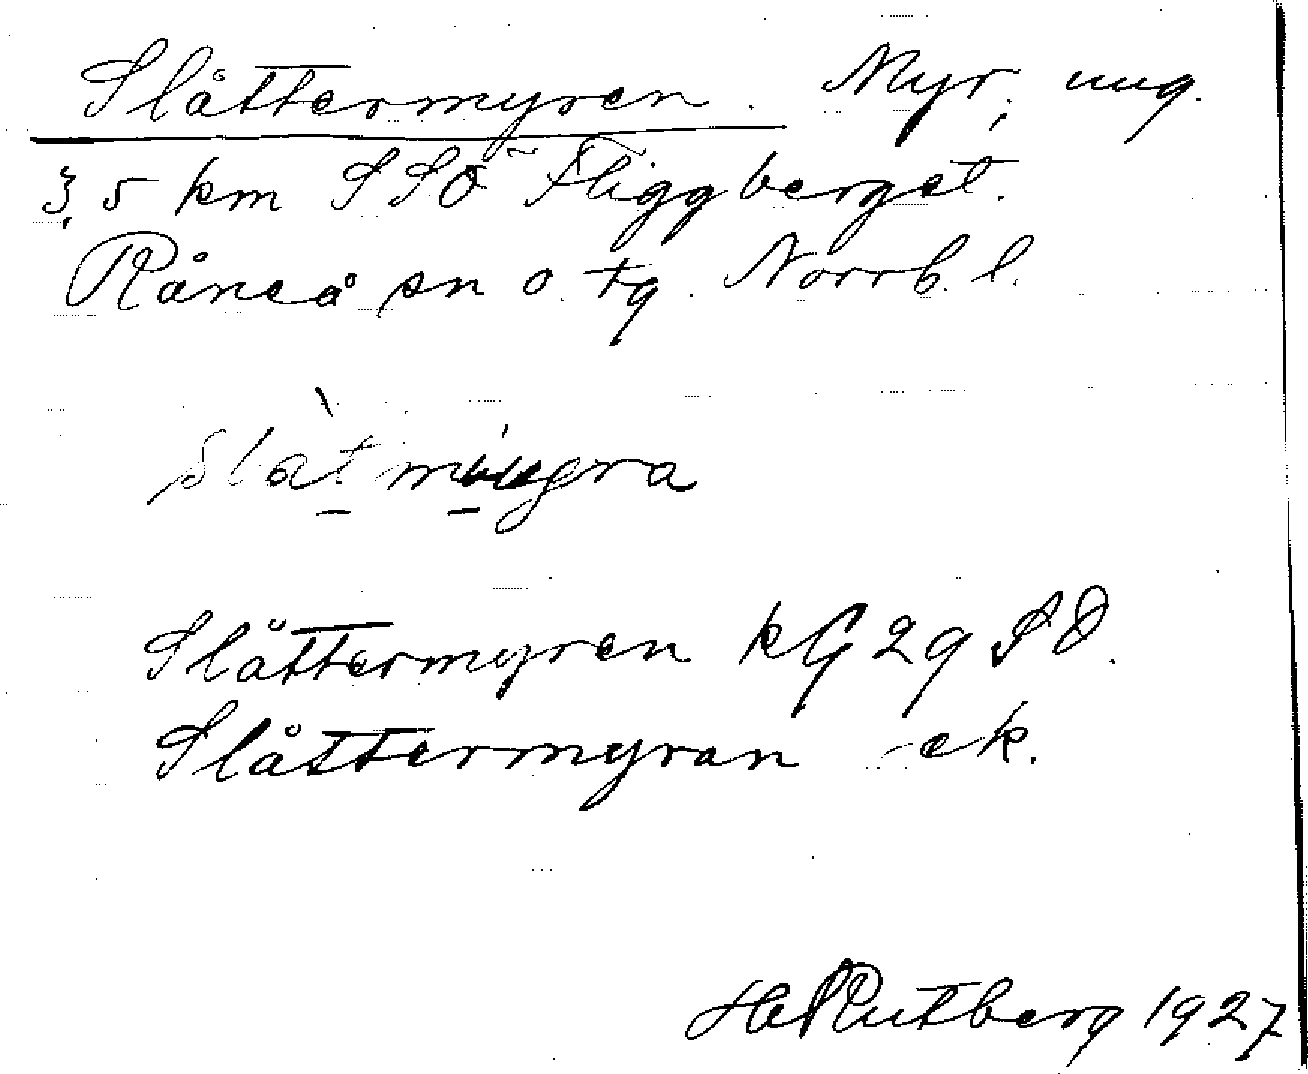 Slåttermyren. Myr, ung.
3,5 km SSÖ Fliggberget.
Råneå sn o. tg. Norrb. l.
Slåttermyren kG 29 SO.
Slåttermyran ek.
H Rutberg 1927